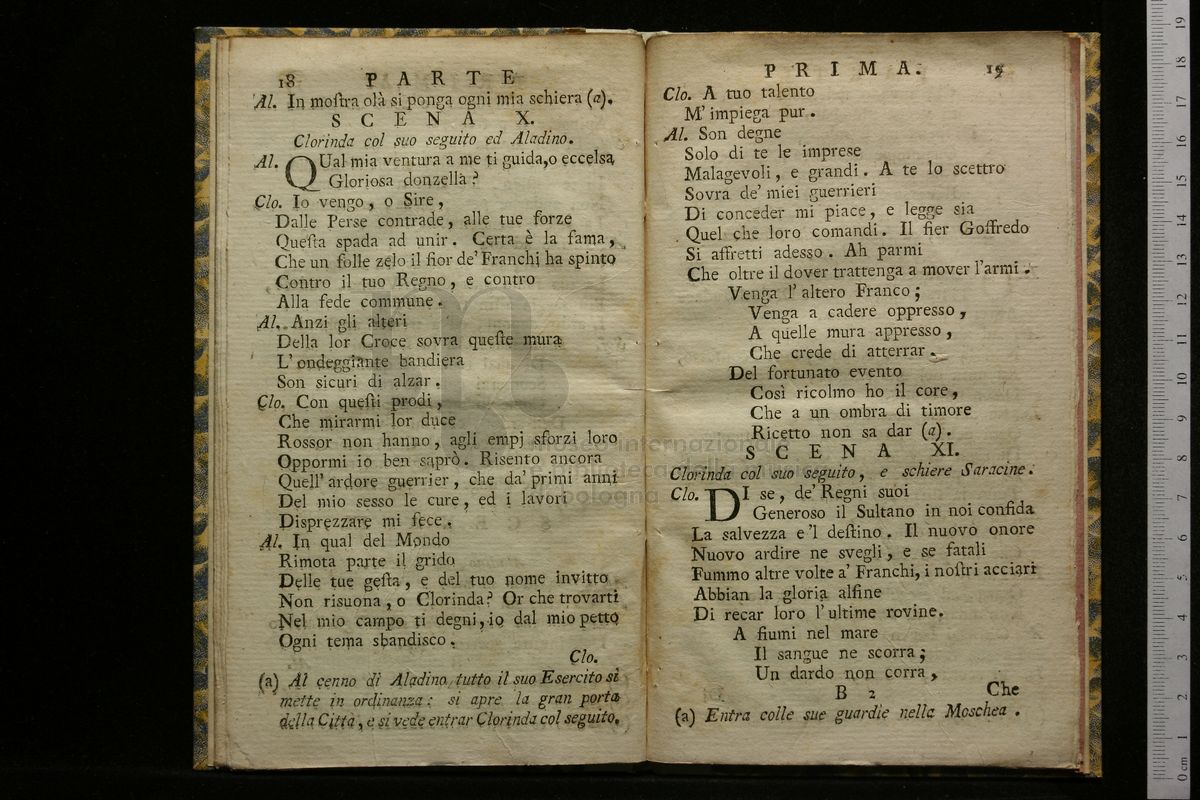 18 PARTE
Al. In moſtra olà si ponga ogni mia schiera (a).
SCENA X.
Clorinda col suo seguito ed Aladino.
Al. QUal mia ventura a me ti guida, o eccelsa
Gloriosa donzella?
Clo. Io vengo, o Sire,
Dalle Perse contrade, alle tue forze
Queſta spada ad unir. Certa è la fama,
Che un folle zelo il fior de' Franchi ha spinto
Contro il tuo Regno, e contro
Alla fede commune.
Al. Anzi gli alteri
Della lor Croce sovra queſte mura
L' ondeggiante bandiera
Son sicuri di alzar.
Clo. Con queſti prodi,
Che mirarmi lor duce
Rossor non hanno, agli empj sforzi loro
Oppormi io ben saprò. Risento ancora
Quell' ardore guerrier, che da' primi anni
Del mio sesso le cure, ed i lavori
Disprezzare mi fece.
Al. In qual del Mondo
Rimota parte il grido
Delle tue geſta, e del tuo nome invitto
Non risuona, o Clorinda? Or che trovarti
Nel mio campo ti degni, io dal mio petto
Ogni tema sbandisco.
Clo.
(a) Al cenno di Aladino tutto il suo Esercito si
mette in ordinanza: si apre la gran porta
della Città, e si vede entrar Clorinda col seguito.
PRIMA. 19
Clo. A tuo talento
M' impiega pur.
Al. Son degne
Solo di te le imprese
Malagevoli, e grandi. A te lo scettro
Sovra de' miei guerrieri
Di conceder mi piace, e legge sia
Quel che loro comandi. Il fier Goffredo
Si affretti adesso. Ah parmi
Che oltre il dover trattenga a mover l'armi.
Venga l' altero Franco;
Venga a cadere oppresso,
A quelle mura appresso,
Che crede di atterrar.
Del fortunato evento
Così ricolmo ho il core,
Che a un ombra di timore
Ricetto non sa dar (a).
SCENA XI.
Clorinda col suo seguito, e schiere Saracine.
Clo. DI se, de' Regni suoi
Generoso il Sultano in noi confida
La salvezza e 'l deſtino. Il nuovo onore
Nuovo ardire ne svegli, e se fatali
Fummo altre volte a' Franchi, i noſtri acciari
Abbian la gloria alfine
Di recar loro l' ultime rovine.
A fiumi nel mare
Il sangue ne scorra;
Un dardo non corra,
B 2 Che
(a) Entra colle sue guardie nella Moschea.